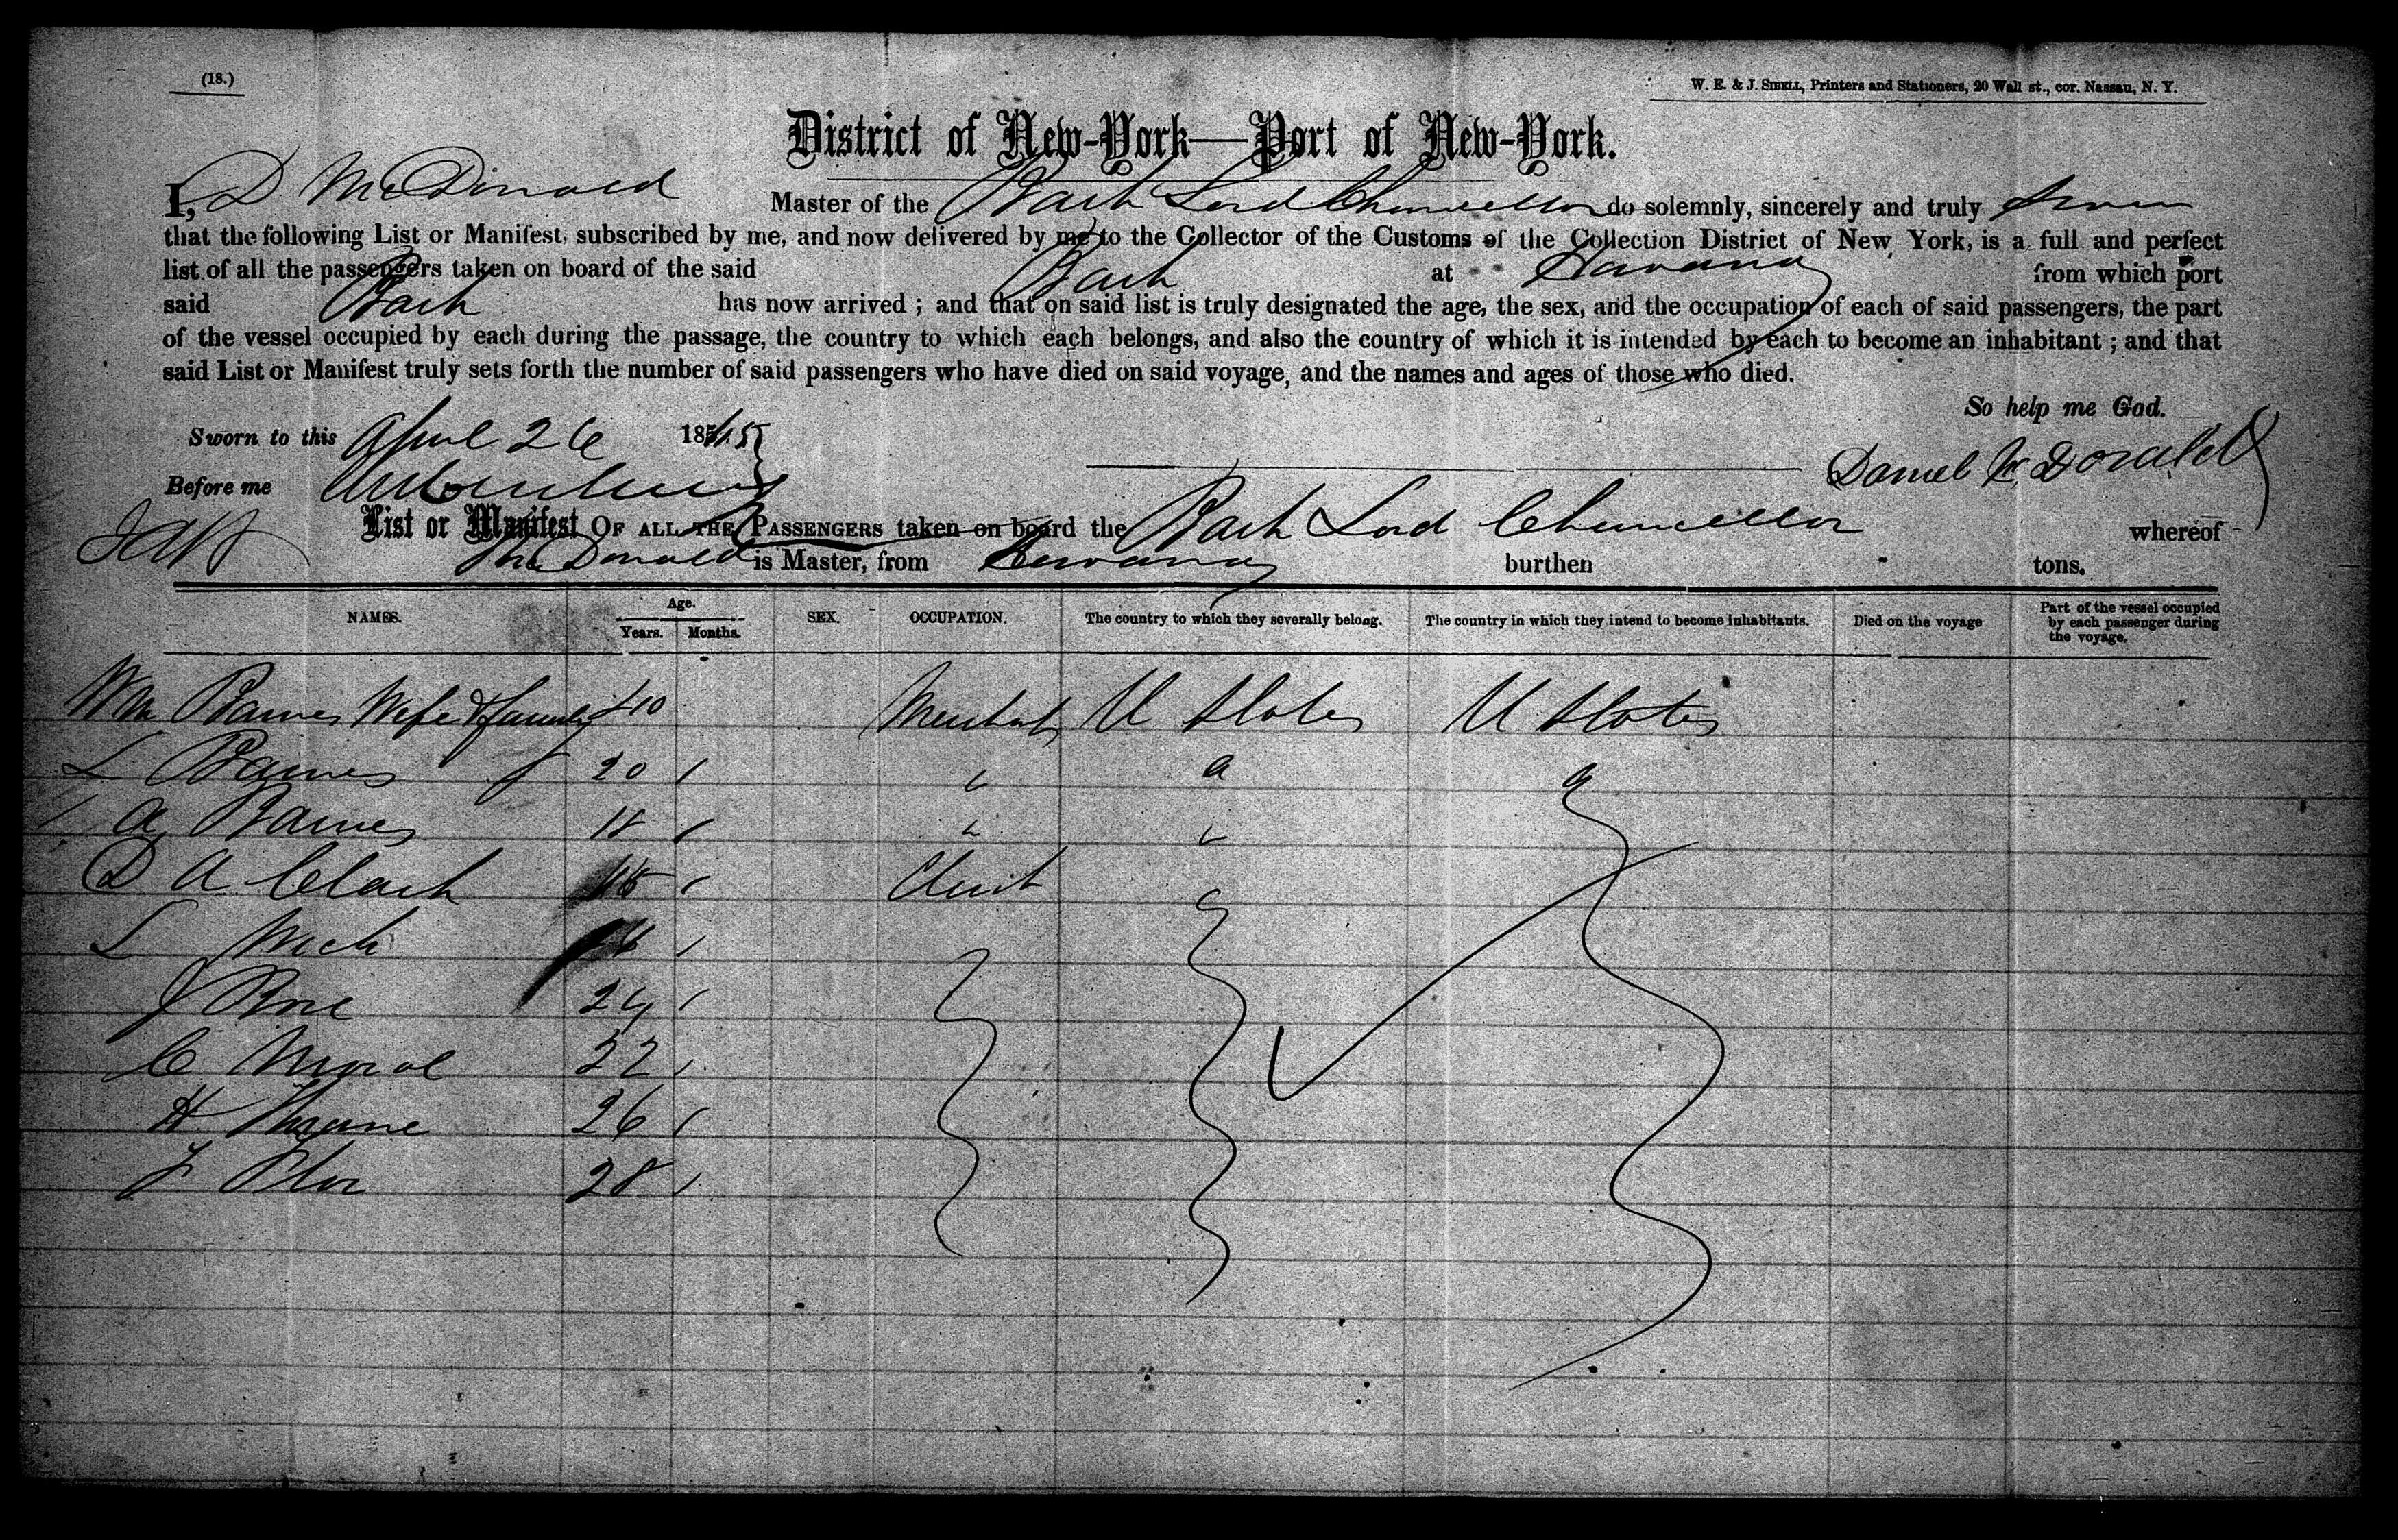 (18.)
W. E. & J. SIBELL, Printers and Stationers, 20 Wall st., cor. Nassau, N. Y.
District of New-York—Port of New-York.
I, D McDonald Master of the Bark Lord Chancellor do solemnly, sincerely and truly swear
that the following List or Manifest, subscribed by me, and now delivered by me to the Collector of the Customs of the Collection District of New York, is a full and perfect
list of all the passengers taken on board of the said Bark at Havana from which port
said Bark has now arrived ; and that on said list is truly designated the age, the sex, and the occupation of each of said passengers, the part
of the vessel occupied by each during the passage, the country to which each belongs, and also the country of which it is intended by each to become an inhabitant ; and that
said List or Manifest truly sets forth the number of said passengers who have died on said voyage, and the names and ages of those who died.
So help me God.
Sworn to this April 26 18
Daniel McDonald
Before me
List or Manifest OF ALL THE PASSENGERS taken on board the Bark Lord Chancellor whereof
McDonald is Master, from Havana burthen tons.
NAMES. Age. Years. Months. SEX. OCCUPATION. The country to which they severally belong. The country in which they intend to become inhabitants. Died on the voyage Part of the vessel occupied by each passenger during the voyage.
Wm Barnes Wife & family 40 Merchant U States U States
L Barnes 20
A Barnes 18
D A Clark
L
J 24
C 22
H 26
28